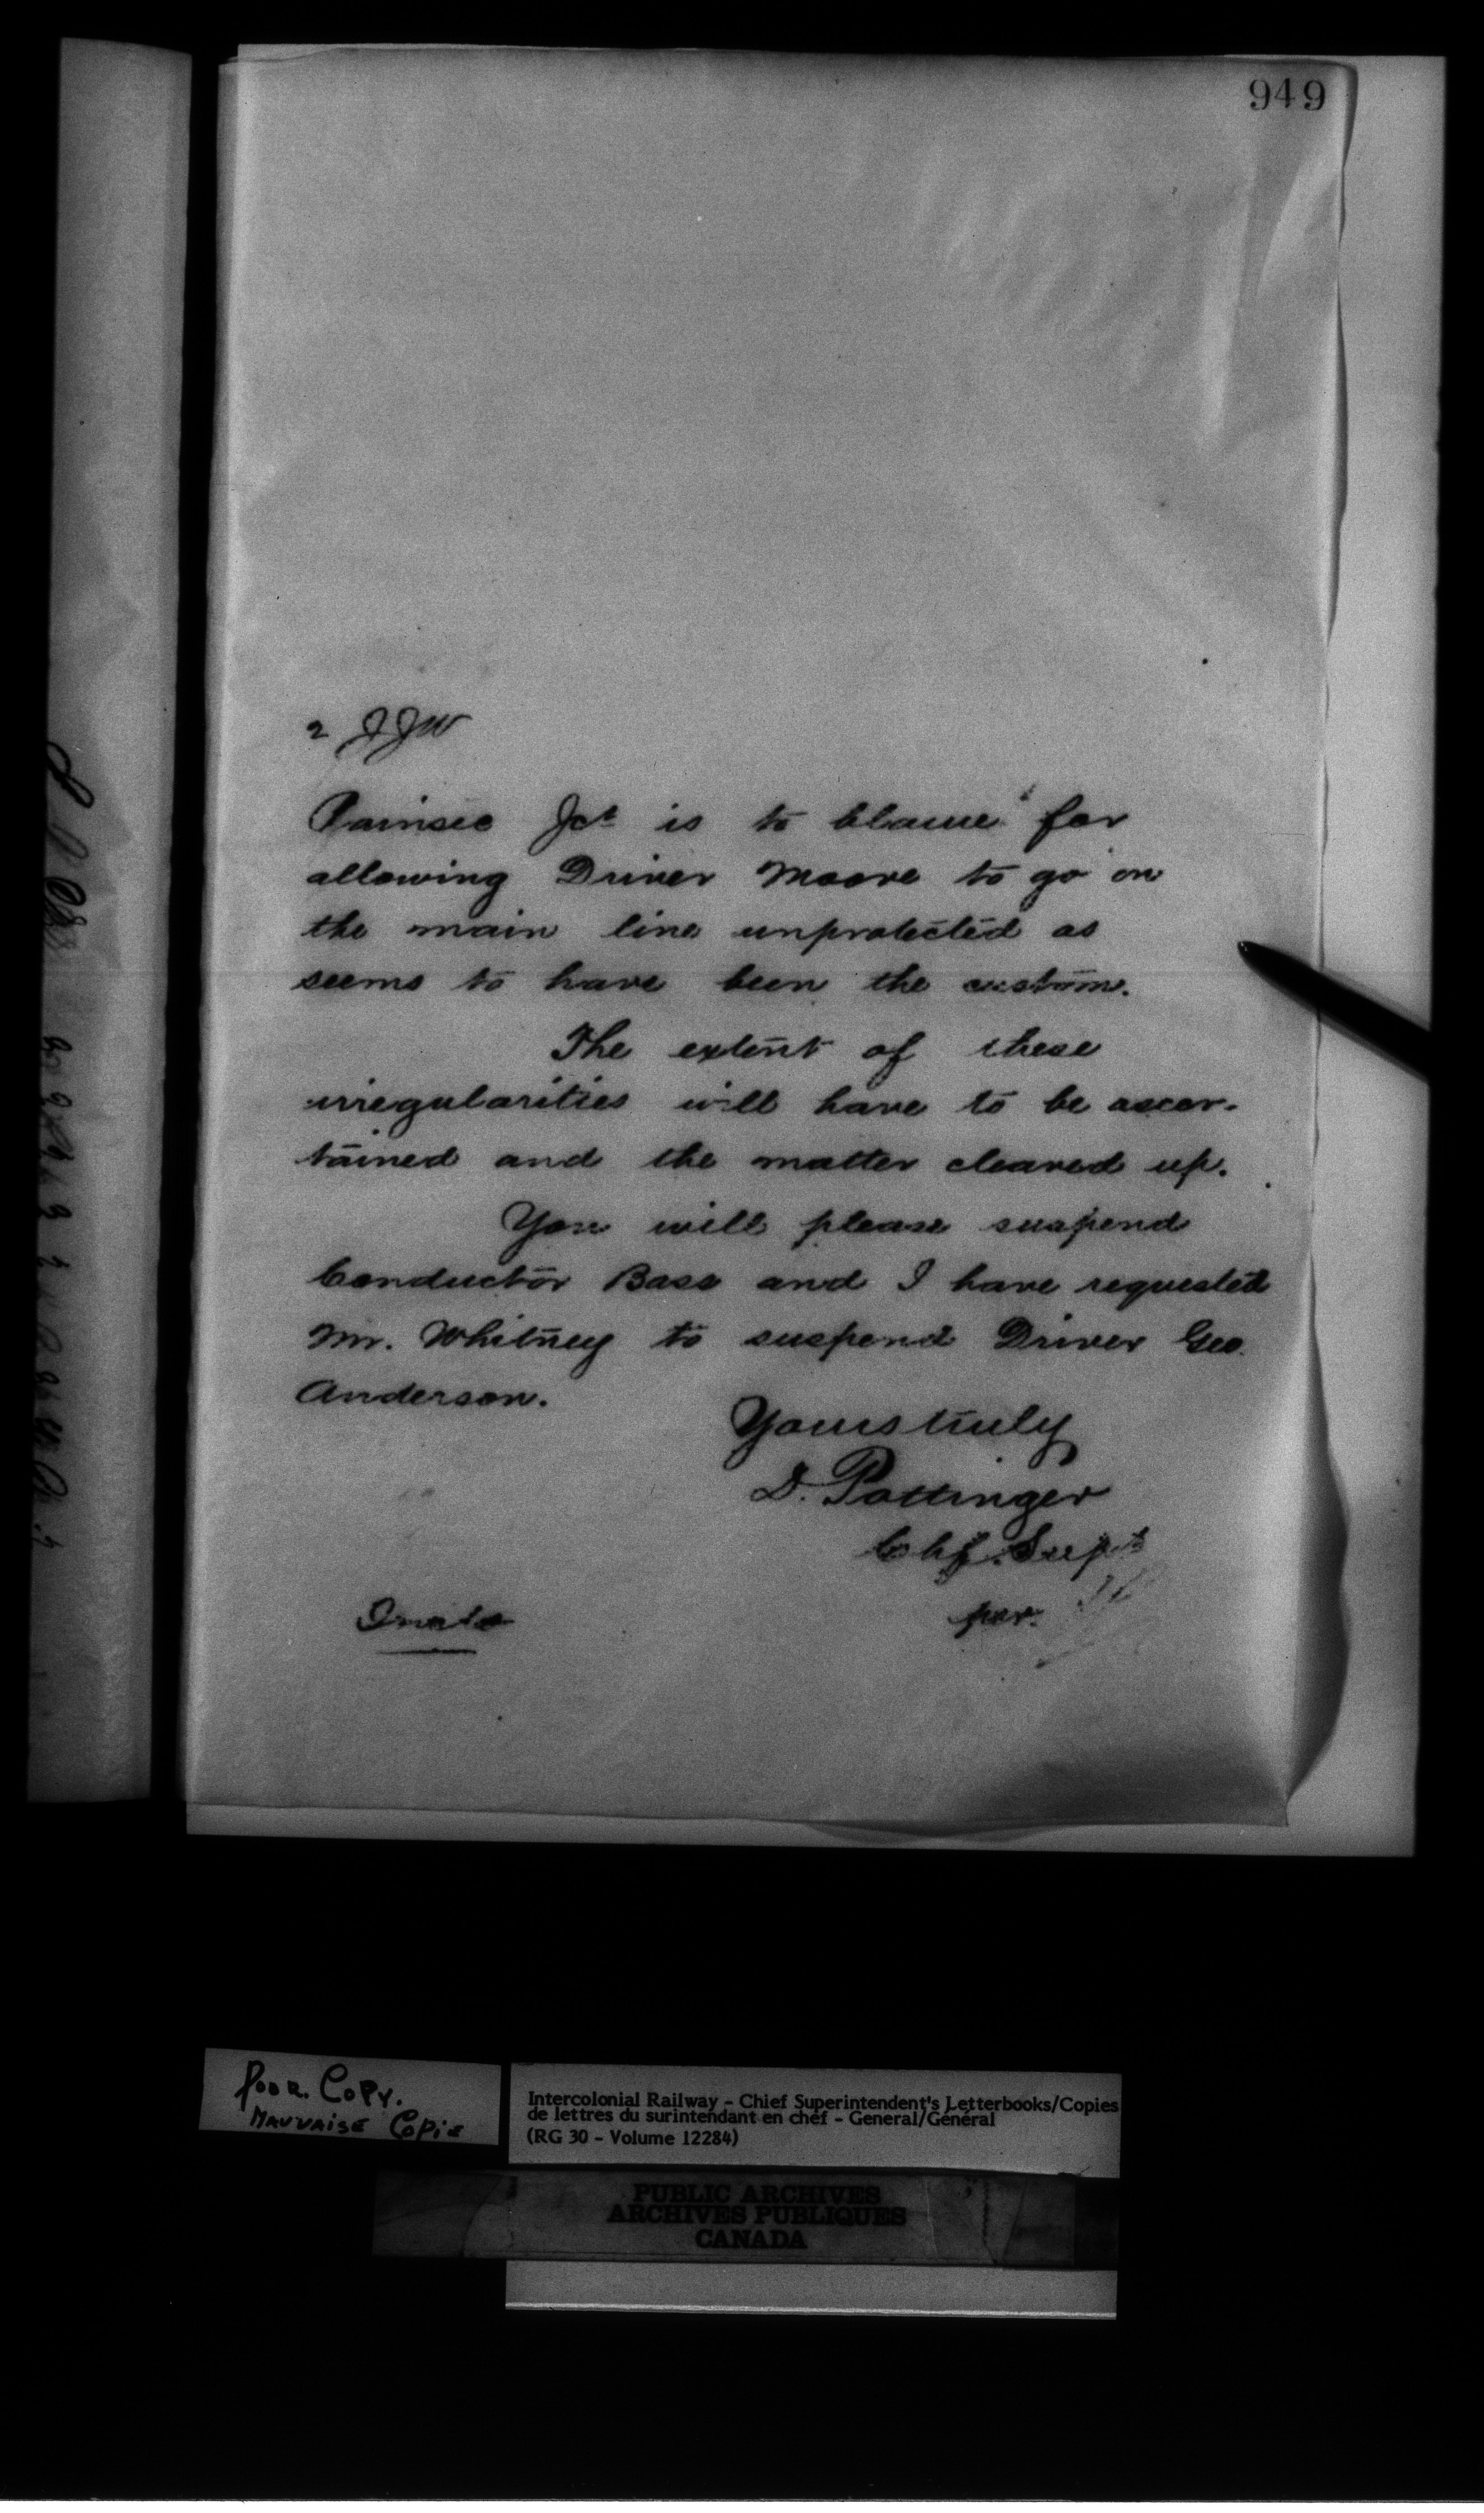 949
2 JJW
Painsec Jct is to blame for
allowing Driver Moore to go on
the main line unprotected as
seems to have been the custom.
The extent of these
irregularities will have to be ascer-
tained and the matter cleared up.
You will please suspend
Conductor Bass and I have requested
Mr. Whitney to suspend Driver Geo.
Anderson.
Yours truly
D. Pottinger
Chf. Supt
per.
POOR. COPY.
MAUVAISE COPIE
Intercolonial Railway - Chief Superintendent's Letterbooks/Copies
de lettres du surintendant en chef - General/Général
(RG 30 - Volume 12284)
PUBLIC ARCHIVES
ARCHIVES PUBLIQUES
CANADA